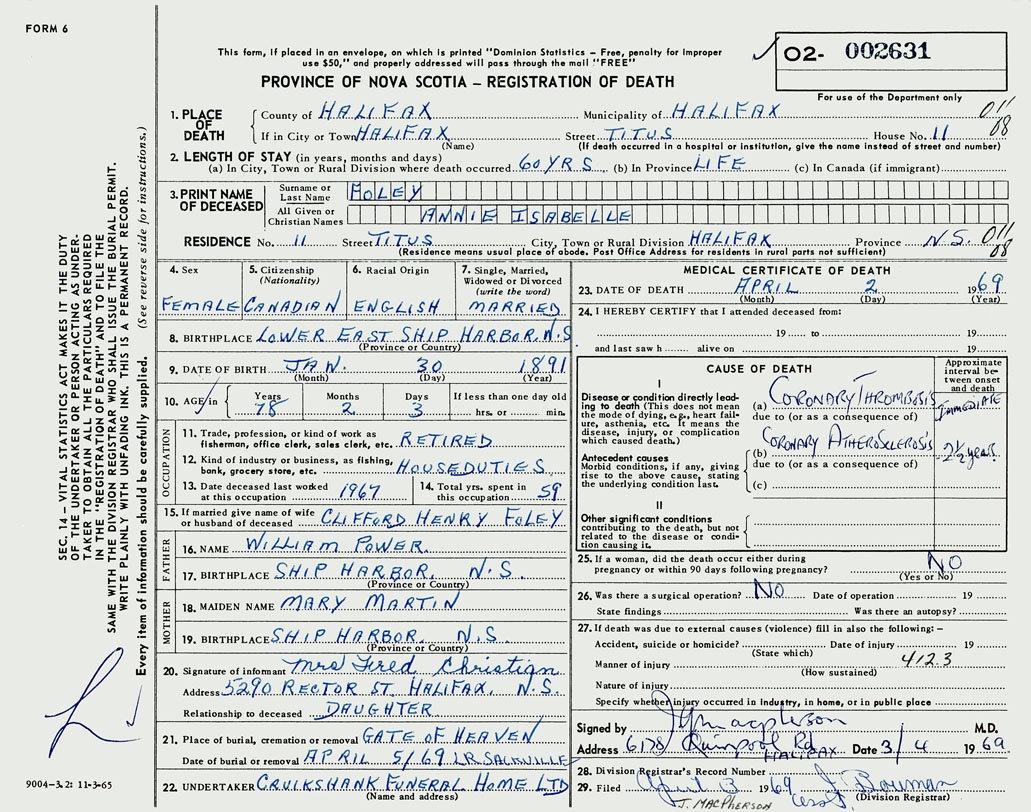 FORM 6
This form, if placed in an envelope, on which is printed "Dominion Statistics – Free, penalty for improper
use $50," and properly addressed will pass through the mail "FREE"
O2- 002631
PROVINCE OF NOVA SCOTIA – REGISTRATION OF DEATH
For use of the Department only
1. PLACE OF DEATH County of HALIFAX Municipality of HALIFAX 011
If in City or Town HALIFAX Street TITUS House No. 11 08
(Name) (If death occurred in a hospital or institution, give the name instead of street and number)
2. LENGTH OF STAY (in years, months and days)
(a) In City, Town or Rural Division where death occurred 60 YRS. (b) In Province LIFE (c) In Canada (if immigrant)
3. PRINT NAME OF DECEASED
Surname or Last Name FOLEY
All Given or Christian Names ANNIE ISABELLE
RESIDENCE No. 11 Street TITUS City, Town or Rural Division HALIFAX Province N.S. 011
(Residence means usual place of abode. Post Office Address for residents in rural parts not sufficient) 08
4. Sex
FEMALE
5. Citizenship
(Nationality)
CANADIAN
6. Racial Origin
ENGLISH
7. Single, Married,
Widowed or Divorced
(write the word)
MARRIED
8. BIRTHPLACE LOWER EAST SHIP HARBOR, N.S.
(Province or Country)
9. DATE OF BIRTH JAN. 30 1891
(Month) (Day) (Year)
10. AGE in Years Months Days If less than one day old
78 2 3 hrs. or min.
OCCUPATION
11. Trade, profession, or kind of work as
fisherman, office clerk, sales clerk, etc. RETIRED
12. Kind of industry or business, as fishing,
bank, grocery store, etc. HOUSEDUTIES
13. Date deceased last worked
at this occupation 1967
14. Total yrs. spent in
this occupation 59
15. If married give name of wife
or husband of deceased CLIFFORD HENRY FOLEY
FATHER
16. NAME WILLIAM POWER.
17. BIRTHPLACE SHIP HARBOR, N.S.
(Province or Country)
MOTHER
18. MAIDEN NAME MARY MARTIN
19. BIRTHPLACE SHIP HARBOR, N.S.
(Province or Country)
20. Signature of informant Mrs Fred Christian
Address 5290 RECTOR ST. HALIFAX, N.S.
Relationship to deceased DAUGHTER
21. Place of burial, cremation or removal GATE OF HEAVEN
Date of burial or removal APRIL 5/69 LR SACKVILLE
22. UNDERTAKER CRUIKSHANK FUNERAL HOME LTD
(Name and address)
MEDICAL CERTIFICATE OF DEATH
23. DATE OF DEATH APRIL 2 1969
(Month) (Day) (Year)
24. I HEREBY CERTIFY that I attended deceased from:
19 to 19
and last saw h alive on 19
CAUSE OF DEATH
Approximate
interval be-
tween onset
and death
I
Disease or condition directly lead-
ing to death (This does not mean
the mode of dying, e.g., heart fail-
ure, asthenia, etc. It means the
disease, injury, or complication
which caused death.)
(a) CORONARY THROMBOSIS IMMEDIATE
due to (or as a consequence of)
Antecedent causes
Morbid conditions, if any, giving
rise to the above cause, stating
the underlying condition last.
(b) CORONARY ATHEROSCLEROSIS 2½ years
due to (or as a consequence of)
(c)
II
Other significant conditions
contributing to the death, but not
related to the disease or condi-
tion causing it.
25. If a woman, did the death occur either during
pregnancy or within 90 days following pregnancy? NO
(Yes or No)
26. Was there a surgical operation? NO Date of operation 19
State findings Was there an autopsy?
27. If death was due to external causes (violence) fill in also the following: –
Accident, suicide or homicide? Date of injury 19
(State which)
Manner of injury 412.3
(How sustained)
Nature of injury
Specify whether injury occurred in Industry, in home, or in public place
Signed by J Macpherson M.D.
Address 6178 Quinpool Rd HALIFAX Date 3/4 1969
28. Division Registrar's Record Number
29. Filed April 3 1969 J. Bowman
(Division Registrar)
J. MACPHERSON
SEC. 14 – VITAL STATISTICS ACT MAKES IT THE DUTY
OF THE UNDERTAKER OR PERSON ACTING AS UNDER-
TAKER TO OBTAIN ALL THE PARTICULARS REQUIRED
IN THE "REGISTRATION OF DEATH" AND TO FILE THE
SAME WITH THE DIVISION REGISTRAR WHO SHALL ISSUE THE BURIAL PERMIT.
WRITE PLAINLY WITH UNFADING INK. THIS IS A PERMANENT RECORD.
Every item of information should be carefully supplied. (See reverse side for instructions.)
9004-3.2: 11-3-65